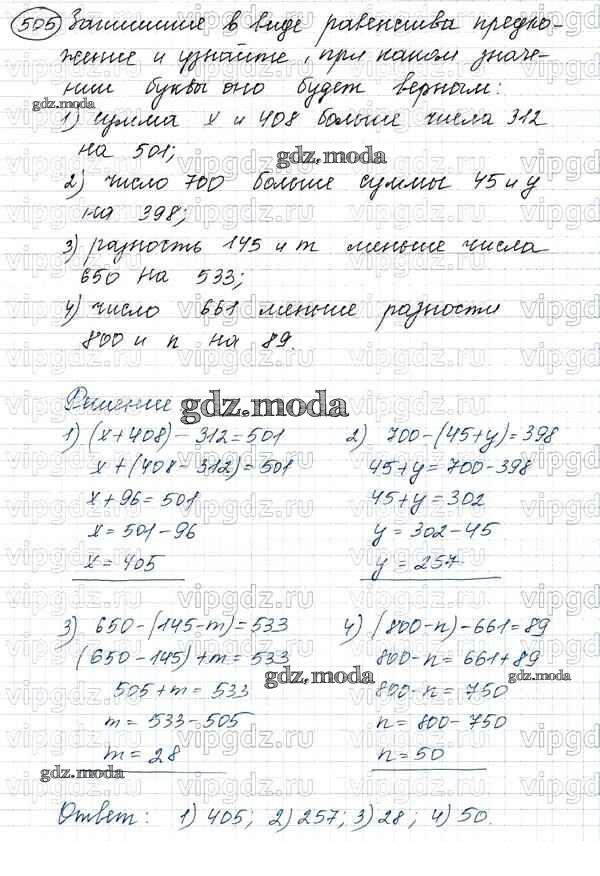 505 Запишите в виде равенства предло-
жение и узнайте, при каком значе-
нии буквы оно будет верным:
gdz.moda
1) сумма x и 408 больше числа 312
на 501;
gdz.moda
2) число 700 больше суммы 45 и y
на 398;
3) разность 145 и m меньше числа
650 на 533;
4) число 661 меньше разности
800 и n на 89.
Решение gdz.moda
1) (x+408)-312=501
x+(408-312)=501
x+96=501
x=501-96
x=405
2) 700-(45+y)=398
45+y=700-398
45+y=302
y=302-45
y=257
3) 650-(145-m)=533
(650-145)+m=533
505+m=533
m=533-505
m=28
4) (800-n)-661=89
800-n=661+89
800-n=750
n=800-750
n=50
gdz.moda
gdz.moda
gdz.moda
Ответ: 1) 405; 2) 257; 3) 28; 4) 50.
vipgdz.ru